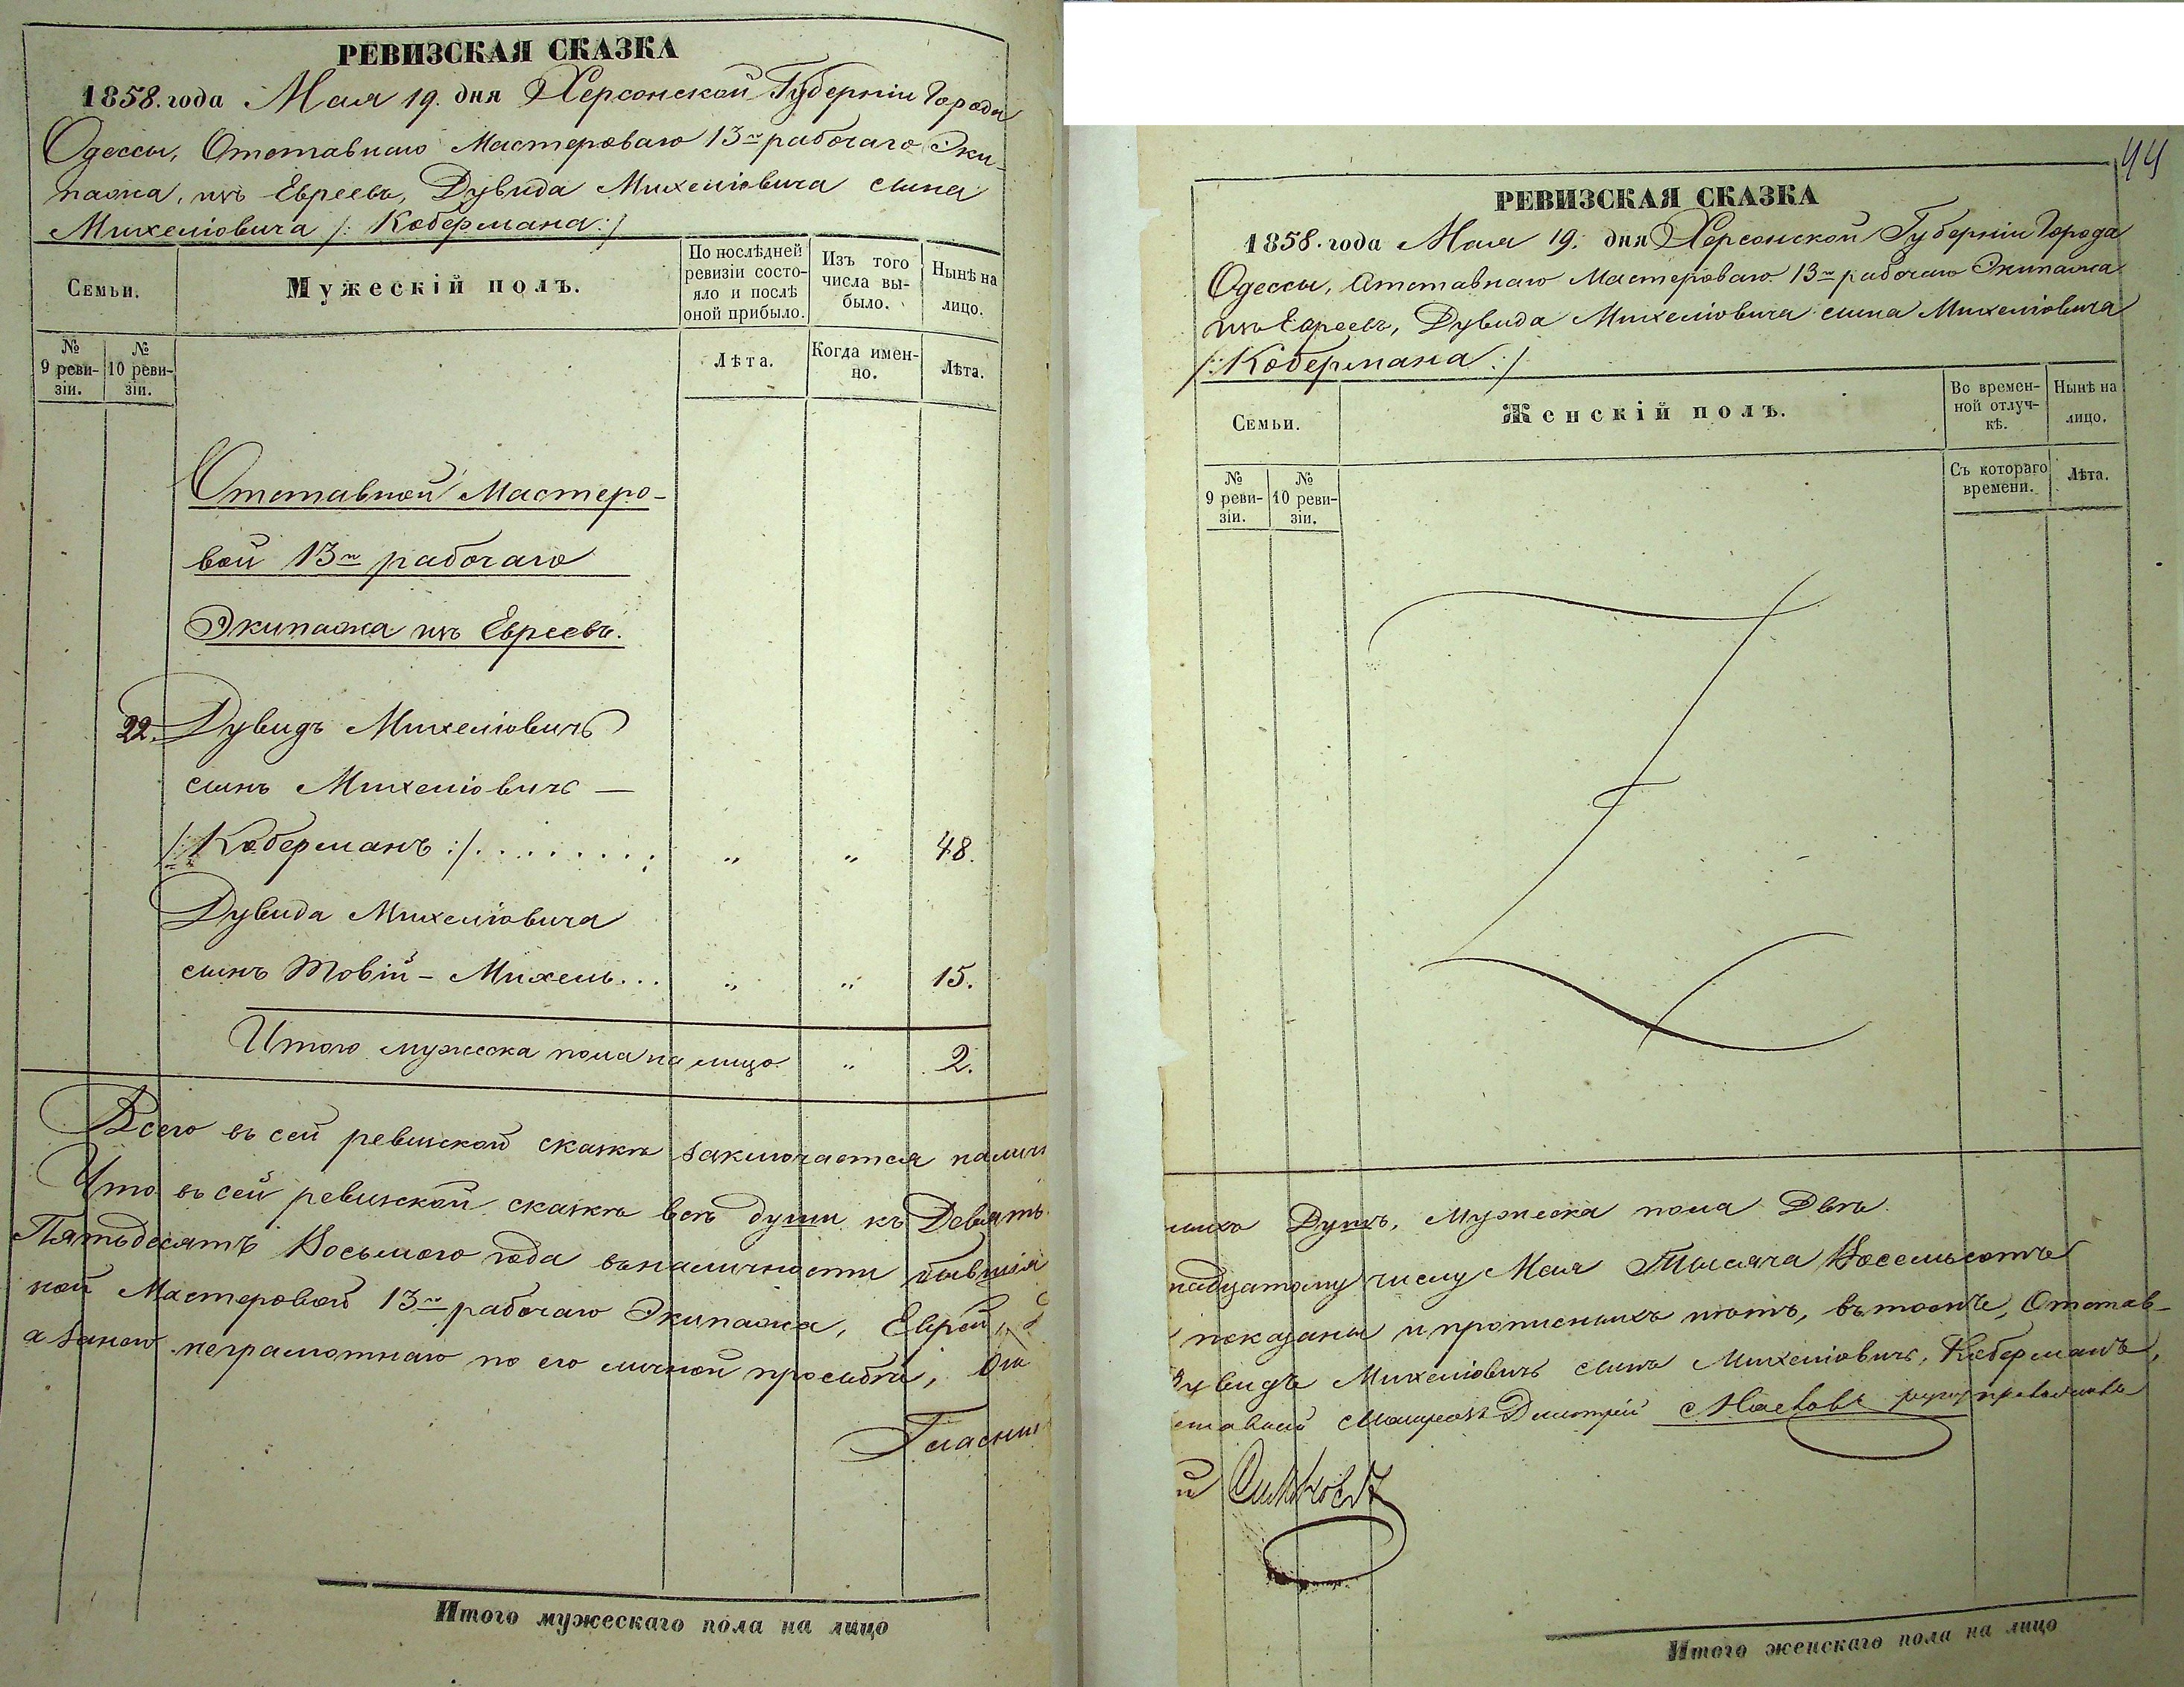 РЕВИЗСКАЯ СКАЗКА
1858. года Мая 19. дня Херсонской Губерніи Города
Одессы, Отставнаго Мастероваго 13го рабочаго Эки-
пажа, изъ Евреевъ, Дувида Михеліовича сына
Михеліовича /: Кобермана :/
Семьи.
Мужескій полъ.
По послѣдней
ревизіи состо-
яло и послѣ
оной прибыло.
Изъ того
числа вы-
было.
Нынѣ на
лицо.
№
9 реви-
зіи.
№
10 реви-
зіи.
Лѣта.
Когда имен-
но.
Лѣта.
Отставной Мастеро-
вой 13го рабочаго
Экипажа изъ Евреевъ.
22. Дувидъ Михеліовичъ
сынъ Михеліовичъ —
/: Коберманъ :/ . . . . . . . . „ „ 48.
Дувида Михеліовича
сынъ Товій - Михель... „ „ 15.
Итого мужеска пола на лицо „ 2.
Всего въ сей ревизской сказкѣ заключается налич
Что въ сей ревизской сказкѣ всѣ души къ Девят
Пятьдесятъ Восьмого года въ наличности бывшія
ной Мастеровой 13го рабочаго Экипажа, Еврей, Д
а за него неграмотнаго по его личной прозьбѣ, От
Гласны
Итого мужескаго пола на лицо
44
РЕВИЗСКАЯ СКАЗКА
1858. года Мая 19. дня Херсонской Губерніи Города
Одессы, Отставнаго Мастероваго 13го рабочаго Экипажа
изъ Евреевъ, Дувида Михеліовича сына Михеліовича
/: Кобермана :/
Семьи.
Женскій полъ.
Во времен-
ной отлуч-
кѣ.
Нынѣ на
лицо.
№
9 реви-
зіи.
№
10 реви-
зіи.
Съ котораго
времени.
Лѣта.
ныхъ Душъ, Мужеска пола Двѣ.
надцатому числу Мая Тысяча Восемьсотъ
показаны и прописныхъ нѣтъ, въ томъ, Отстав-
увидъ Михеліовичъ сынъ Михеліовичъ, Коберманъ,
ставной Дмитрій
й
Итого женскаго пола на лицо